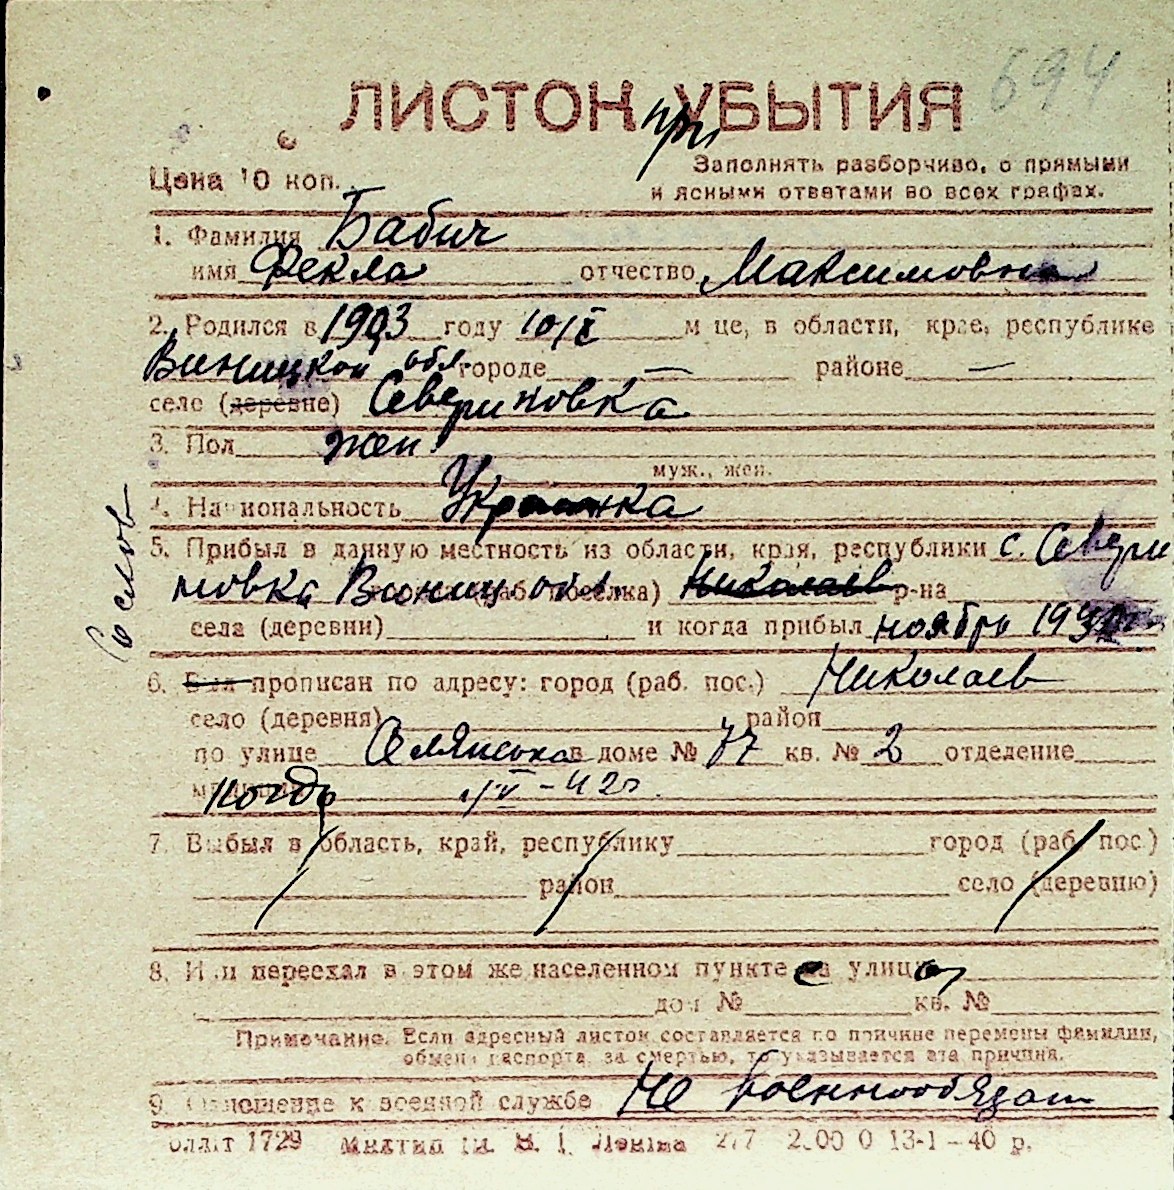 694
ЛИСТОК УБЫТИЯ
при
Заполнять разборчиво, с прямыми
Цена 10 коп.
и ясными ответами во всех графах.
1. Фамилия Бабич
имя Фекла отчество Максимовна
2. Родился в 1903 году 10/X м це, в области, крае, республике
Виницкой обл городе — районе —
село (деревне) Севериновка
3. Пол жен.
муж., жен.
4. Национальность Украинка
5. Прибыл в данную местность из области, края, республики с. Севери
новка Виниц. обл. поселка) Николаев р-на
села (деревни) и когда прибыл ноябрь
Со слов
6. Был прописан по адресу: город (раб. пос.) Николаев
село (деревня) район
по улице в доме № 77 кв. № 2 отделение
когда
7. Выбыл в область, край, республику город (раб. пос.)
район село (деревню)
8. Или переехал в этом же населенном пункте с улицы
дом № кв. №
Примечание. Если адресный листок составляется по причине перемены фамилии,
обмена паспорта, за смертью, то указывается эта причина.
9. Отношение к военной службе Не военнообязан
1729 ім. В. І. Леніна 2/7 13-1-40 р.